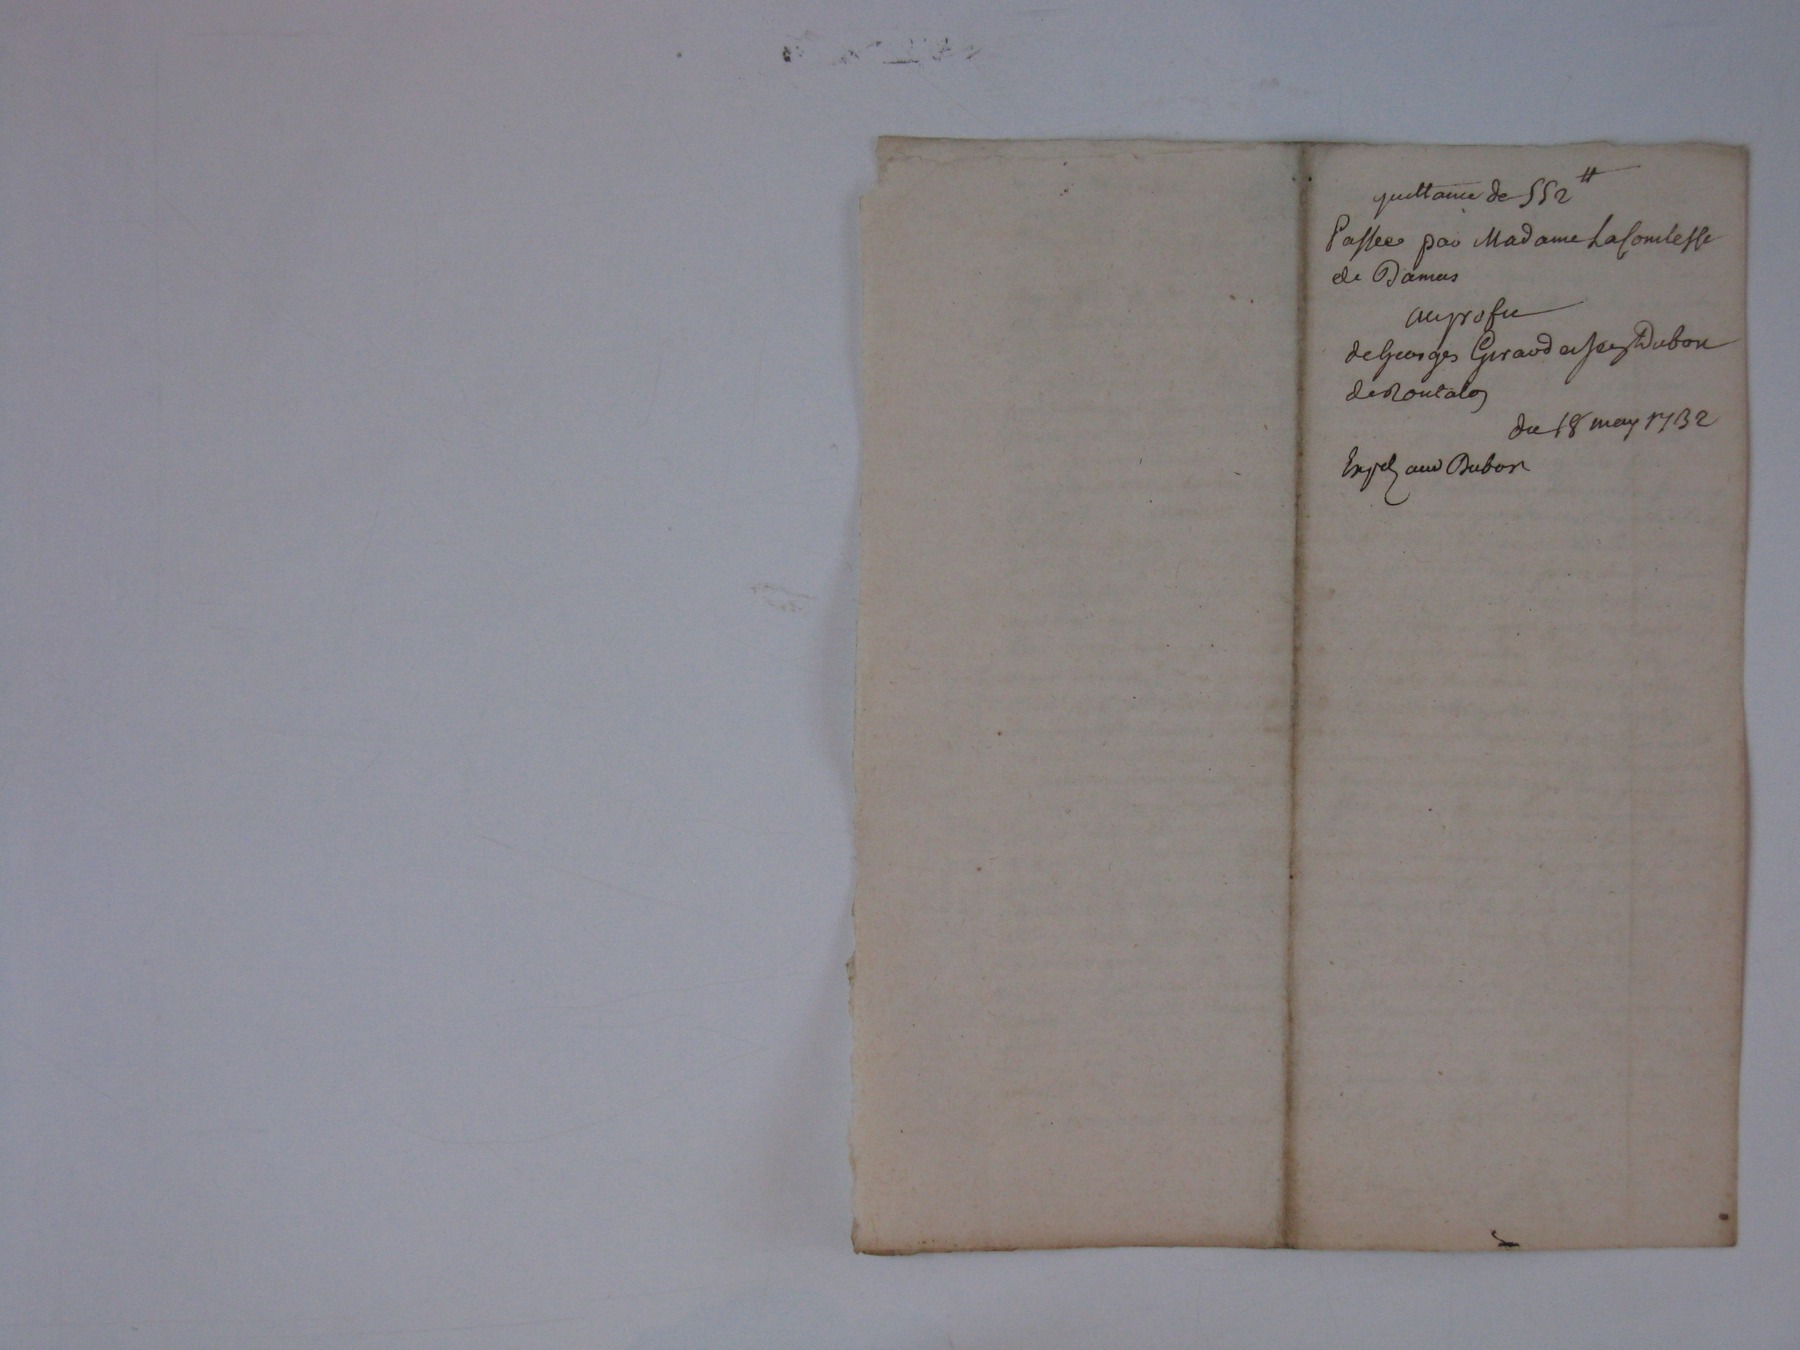 quittance de 552 ₶
Passee par Madame La Comtesse
de Damas
au profit
de Georges Giraud et Dubon
de Rontalon
du 18 may 1732
Exped aud Dubon